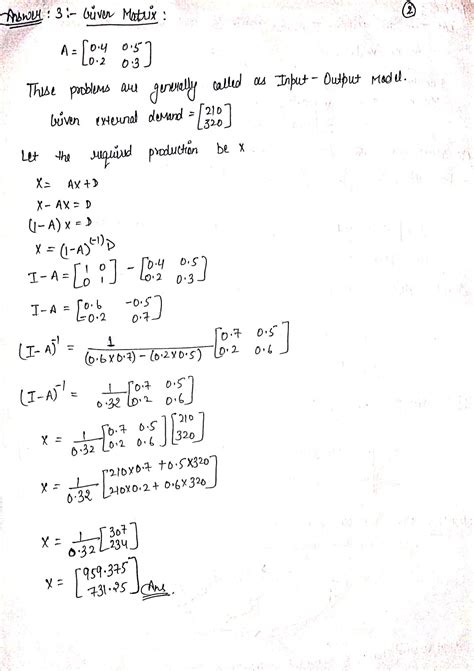 Answer : 3 :- Given Matrix :
②
A = [0.4 0.5
0.2 0.3]
These problems are generally called as Input - Output Model.
Given external demand = [210
320]
Let the required production be x
X = AX + D
X - AX = D
(1-A) X = D
X = (1-A)^(-1) D
I - A = [1 0
0 1] - [0.4 0.5
0.2 0.3]
I - A = [0.6 -0.5
-0.2 0.7]
(I-A)^-1 = 1/((0.6x0.7) - (0.2x0.5)) [0.7 0.5
0.2 0.6]
(I-A)^-1 = 1/0.32 [0.7 0.5
0.2 0.6]
X = 1/0.32 [0.7 0.5
0.2 0.6] [210
320]
X = 1/0.32 [210x0.7 + 0.5x320
210x0.2 + 0.6x320]
X = 1/0.32 [307
234]
X = [959.375
731.25] Ans.